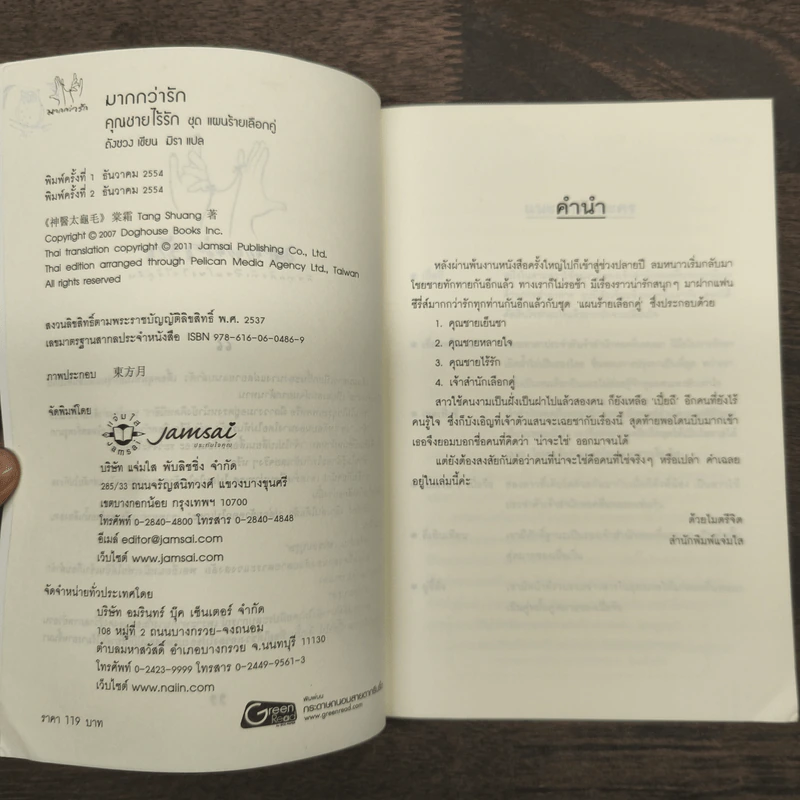 มากกว่ารัก
มากกว่ารัก
คุณชายไร้รัก ชุด แผนร้ายเลือกคู่
ถังซวง เขียน มิรา แปล
พิมพ์ครั้งที่ 1 ธันวาคม 2554
พิมพ์ครั้งที่ 2 ธันวาคม 2554
《神醫太龜毛》 棠霜 Tang Shuang 著
Copyright © 2007 Doghouse Books Inc.
Thai translation copyright © 2011 Jamsai Publishing Co., Ltd.
Thai edition arranged through Pelican Media Agency Ltd., Taiwan
All rights reserved
สงวนลิขสิทธิ์ตามพระราชบัญญัติลิขสิทธิ์ พ.ศ. 2537
เลขมาตรฐานสากลประจำหนังสือ ISBN 978-616-06-0486-9
ภาพประกอบ 東方月
จัดพิมพ์โดย
แจ่มใส
Jamsai
Jamsai
ประทับใจคุณ
บริษัท แจ่มใส พับลิชชิ่ง จำกัด
285/33 ถนนจรัญสนิทวงศ์ แขวงบางขุนศรี
เขตบางกอกน้อย กรุงเทพฯ 10700
โทรศัพท์ 0-2840-4800 โทรสาร 0-2840-4848
อีเมล์ editor@jamsai.com
เว็บไซต์ www.jamsai.com
จัดจำหน่ายทั่วประเทศโดย
บริษัท อมรินทร์ บุ๊ค เซ็นเตอร์ จำกัด
108 หมู่ที่ 2 ถนนบางกรวย-จงถนอม
ตำบลมหาสวัสดิ์ อำเภอบางกรวย จ.นนทบุรี 11130
โทรศัพท์ 0-2423-9999 โทรสาร 0-2449-9561-3
เว็บไซต์ www.naiin.com
ราคา 119 บาท
Green Read
พิมพ์บน
กระดาษถนอมสายตากรีนรี้ด
www.greenread.com
คำนำ
หลังผ่านพ้นงานหนังสือครั้งใหญ่ไปก็เข้าสู่ช่วงปลายปี ลมหนาวเริ่มกลับมา
โชยชายทักทายกันอีกแล้ว ทางเราก็ไม่รอช้า มีเรื่องราวน่ารักสนุกๆ มาฝากแฟน
ซีรี่ส์มากกว่ารักทุกท่านกันอีกแล้วกับชุด 'แผนร้ายเลือกคู่' ซึ่งประกอบด้วย
1. คุณชายเย็นชา
2. คุณชายหลายใจ
3. คุณชายไร้รัก
4. เจ้าสำนักเลือกคู่
สาวใช้คนงามเป็นฝั่งเป็นฝาไปแล้วสองคน ก็ยังเหลือ 'เปี้ยถี' อีกคนที่ยังไร้
คนรู้ใจ ซึ่งก็บังเอิญที่เจ้าตัวแสนจะเฉยชากับเรื่องนี้ สุดท้ายพอโดนบีบมากเข้า
เธอจึงยอมบอกชื่อคนที่คิดว่า 'น่าจะใช่' ออกมาจนได้
แต่ยังต้องสงสัยกันต่อว่าคนที่น่าจะใช่คือคนที่ใช่จริงๆ หรือเปล่า คำเฉลย
อยู่ในเล่มนี้ค่ะ
ด้วยไมตรีจิต
สำนักพิมพ์แจ่มใส